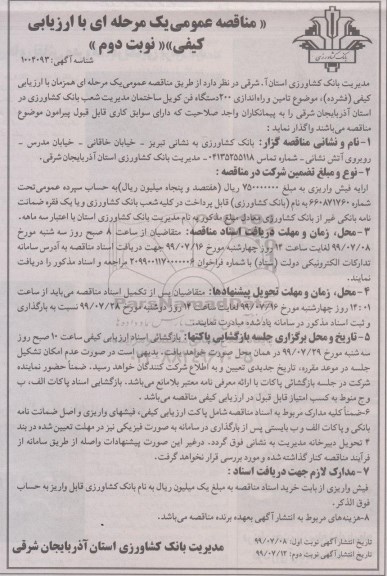 « مناقصه عمومی یک مرحله ای با ارزیابی
کیفی»« نوبت دوم »
شناسه آگهی: ۱۰۰۴۰۹۳
بانک کشاورزی
مدیریت بانک کشاورزی استان آ. شرقی در نظر دارد از طریق مناقصه عمومی یک مرحله ای همزمان با ارزیابی
کیفی (فشرده)، موضوع تامین و راه‌اندازی ۲۰۰ دستگاه فن کویل ساختمان مدیریت شعب بانک کشاورزی در
استان آذربایجان شرقی را به پیمانکاران واجد صلاحیت که دارای سوابق کاری قابل قبول پیرامون موضوع
مناقصه می‌باشند واگذار نماید :
۱- نام و نشانی مناقصه گزار: بانک کشاورزی به نشانی تبریز - خیابان خاقانی - خیابان مدرس -
روبروی آتش نشانی - شماره تماس ۰۴۱۳۵۲۵۵۱۱۸ - مدیریت بانک کشاورزی استان آذربایجان شرقی.
۲- نوع و مبلغ تضمین شرکت در مناقصه :
ارایه فیش واریزی به مبلغ ۷۵۰۰۰۰۰۰۰ ریال (هفتصد و پنجاه میلیون ریال) به حساب سپرده عمومی تحت
شماره ۶۶۰۸۷۱۷۶۰ به نام (بانک کشاورزی) قابل پرداخت در کلیه شعب بانک کشاورزی و یا یک فقره ضمانت
نامه بانکی غیر از بانک کشاورزی معادل مبلغ مذکور به نام مدیریت بانک کشاورزی استان با اعتبار سه ماهه.
۳- محل، زمان و مهلت دریافت اسناد مناقصه: متقاضیان از ساعت ۸ صبح روز سه شنبه مورخ
۹۹/۰۷/۰۸ لغایت ساعت ۱۴ روز چهارشنبه مورخ ۹۹/۰۷/۱۶ جهت دریافت اسناد مناقصه به آدرس سامانه
تدارکات الکترونیکی دولت (ستاد) با شماره فراخوان ۲۰۹۹۰۰۱۱۷۰۰۰۰۰۶ مراجعه و اسناد مذکور را دریافت
نمایند.
۴- محل، زمان و مهلت تحویل پیشنهادها: متقاضیان پس از تکمیل اسناد مناقصه می‌باید از ساعت
۱۴:۰۱ روز چهارشنبه مورخ ۹۹/۰۷/۱۶ لغایت ساعت ۱۴ روز دوشنبه مورخ ۹۹/۰۷/۲۸ نسبت به بارگذاری
و ثبت اسناد مذکور در سامانه یاد شده مبادرت نمایند.
۵- تاریخ و محل برگزاری جلسه بازگشایی پاکتها: بازگشائی اسناد ارزیابی کیفی ساعت ۱۰ صبح روز
سه شنبه مورخ ۹۹/۰۷/۲۹ در همان محل صورت خواهد یافت. بدیهی است در صورت عدم امکان تشکیل
جلسه در موعد مقرر، تاریخ جدیدی تعیین و به اطلاع شرکت کنندگان خواهد رسید. ضمناً حضور نماینده
شرکت در جلسه بازگشائی پاکات با ارائه معرفی نامه معتبر بلامانع می‌باشد. بازگشایی اسناد پاکات الف، ب
وج منوط به کسب امتیاز قابل قبول در ارزیابی کیفی مناقصه می‌باشد.
۶- ضمناً کلیه مدارک مربوط به اسناد مناقصه شامل پاکت ارزیابی کیفی، فیشهای واریزی و اصل ضمانت نامه
بانکی و پاکات الف و ب بایستی پس از بارگذاری در سامانه به صورت فیزیکی نیز در مهلت تعیین شده در بند
۴ تحویل دبیرخانه مدیریت به نشانی فوق گردد، درغیر این صورت پیشنهادات واصله از طریق سامانه از
فرآیند مناقصه کنار گذاشته شده و مورد بررسی قرار نخواهد گرفت.
۷- مدارک لازم جهت دریافت اسناد :
فیش واریزی از بابت خرید اسناد مناقصه به مبلغ یک میلیون ریال به نام بانک کشاورزی قابل واریز به حساب
فوق الذکر.
۸- هزینه‌های مربوط به انتشار آگهی بعهده برنده مناقصه می‌باشد.
تاریخ انتشار آگهی نوبت اول: ۹۹/۰۷/۰۸
تاریخ انتشار آگهی نوبت دوم: ۹۹/۰۷/۱۲
مدیریت بانک کشاورزی استان آذربایجان شرقی